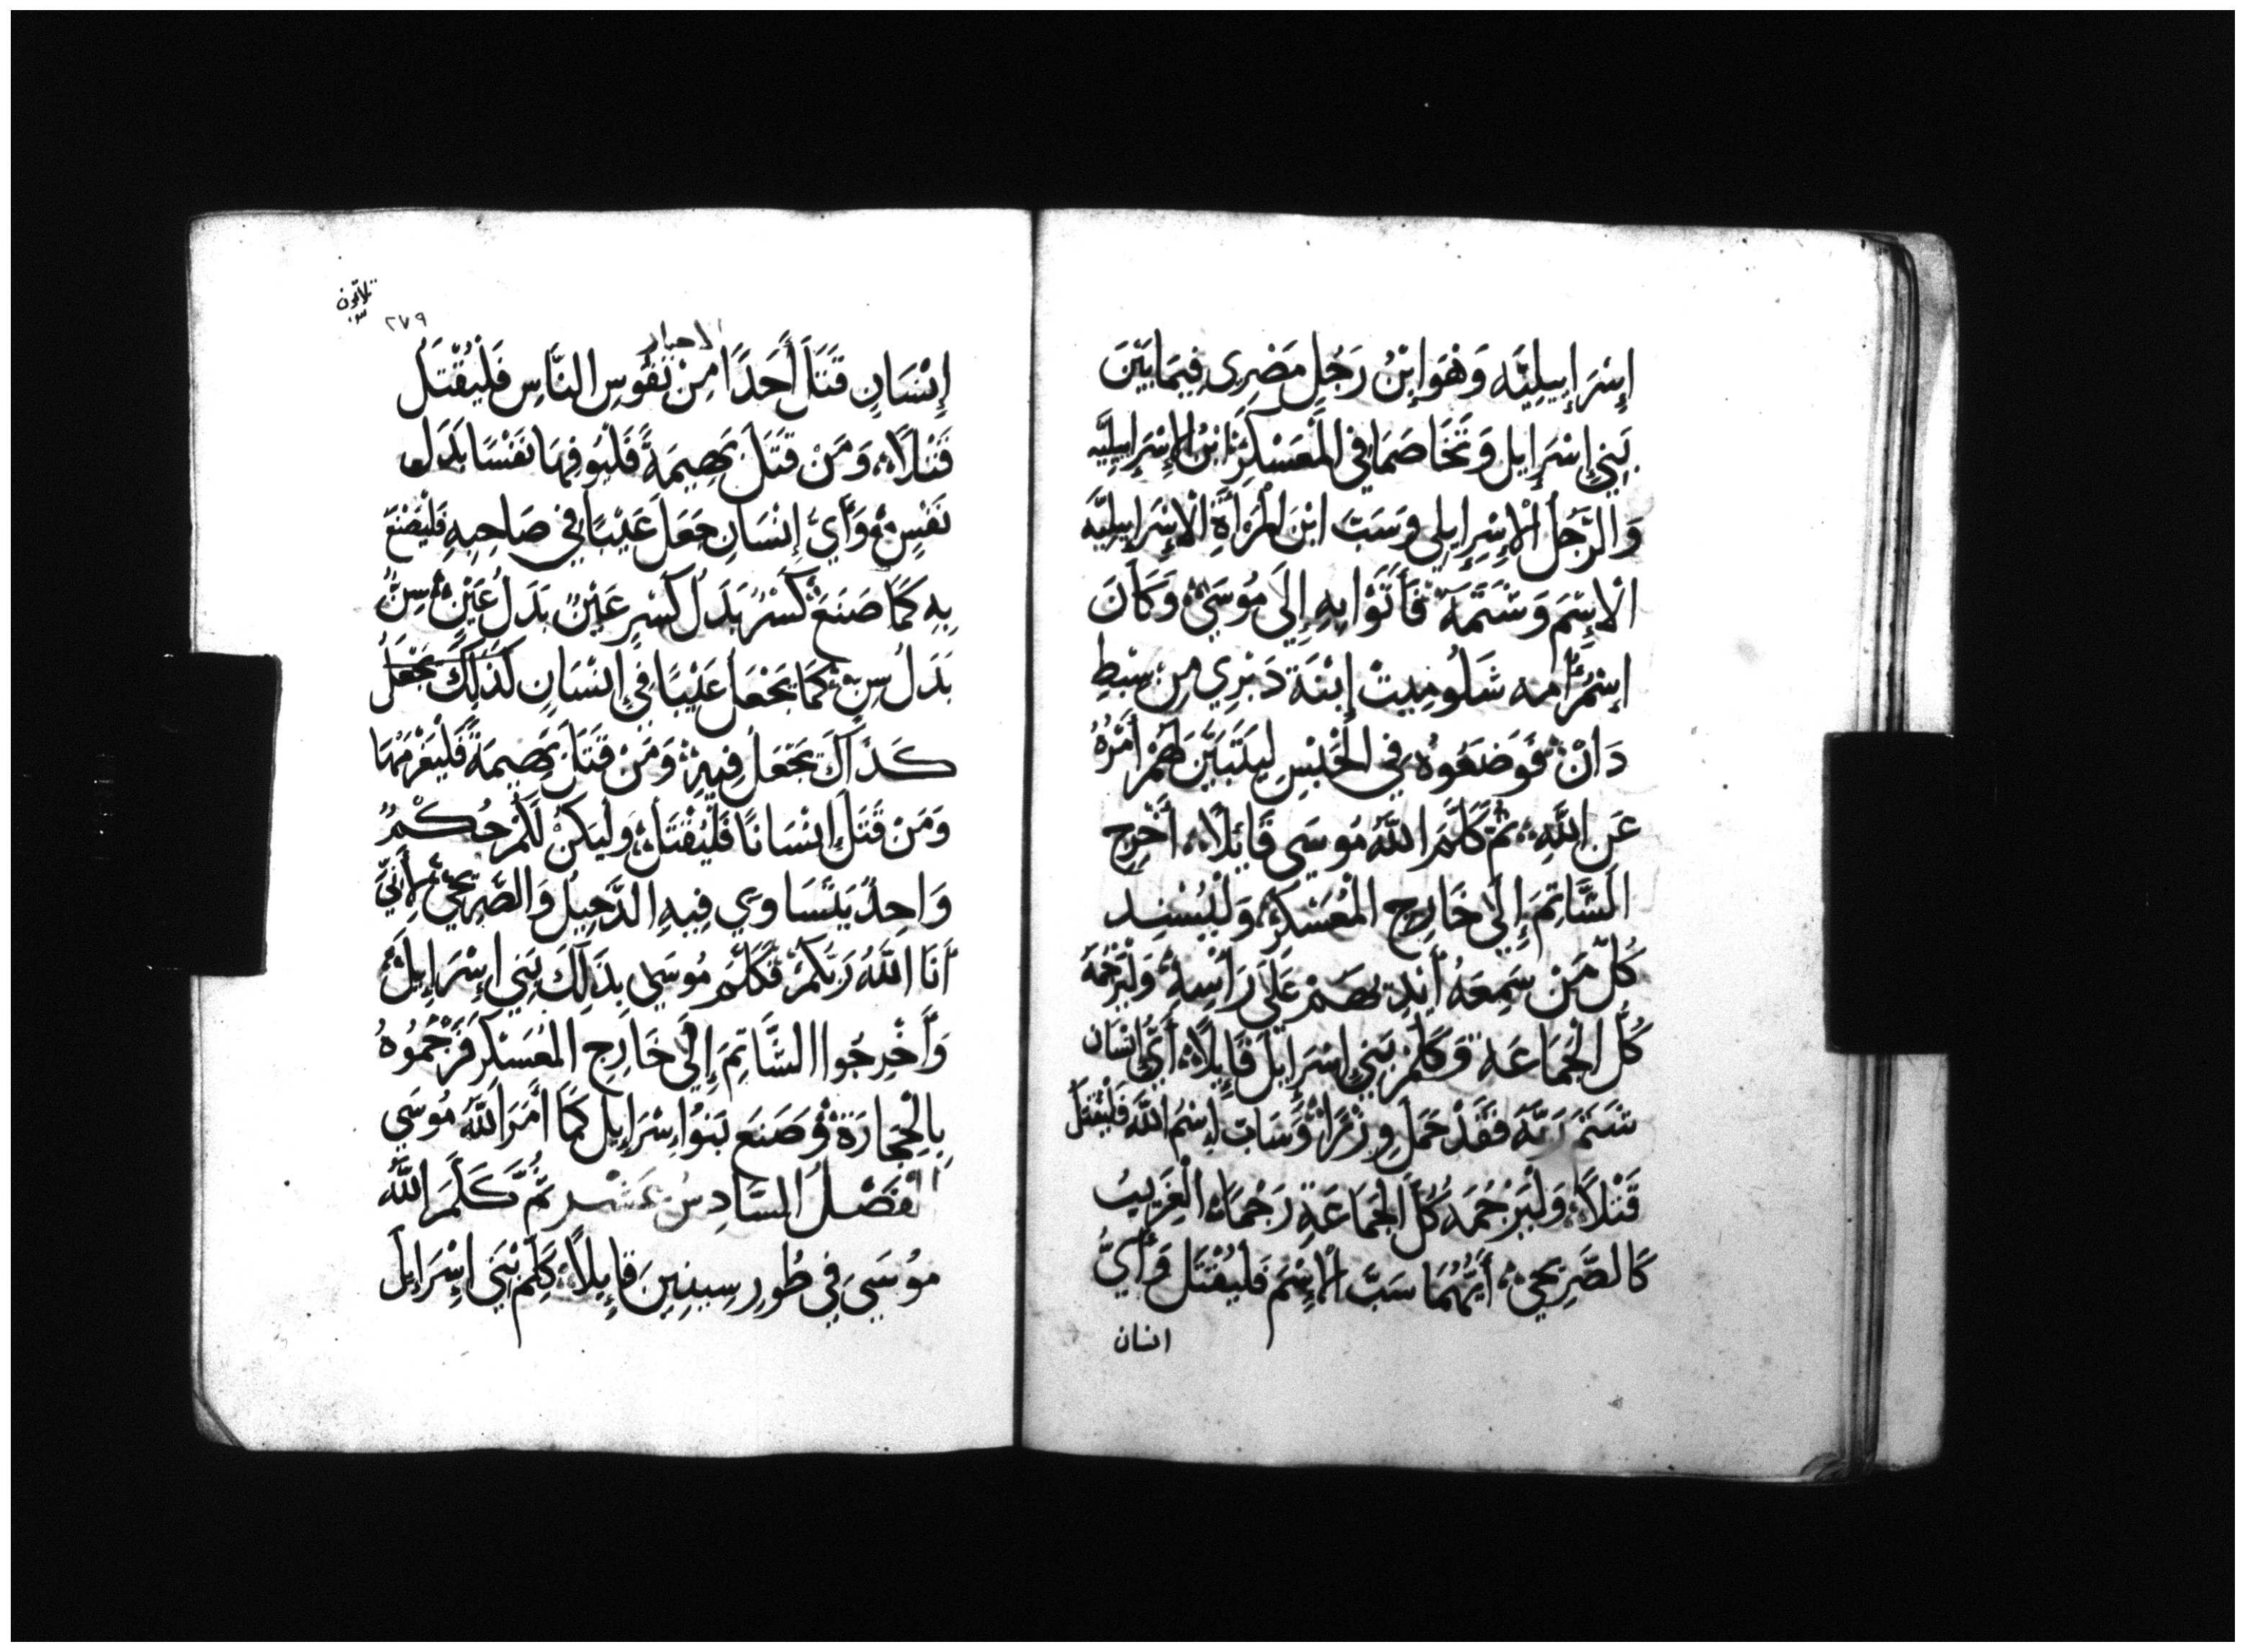 إِسْرَإِيلِيَّه وَهُوَ إِبْنُ رَجُلٍ مَصْرِى فِيمَابَيْنَ
بَنِي إِسْرَإِيل وَتَخَاصَمَا فِي الْمُعَسْكَرِ ابْنُ الإِسْرَإِيلِيَّه
وَالرَّجُلُ الْإِسْرِإِيلِي وَسَبَّ ابْنَ المْرَأَةِ الْإِسْرَإِيلِيَّه
الْإِسْمَ وَشَتَمَهُ فَأَتَوْا بِهِ إِلَى مُوسَى وَكَانَ
إِسْمُ أُمه شَلُومِيثْ إِبْنَة دَبْرِي مِنْ سِبْطِ
دَانْ فَوَضَعُوهُ فِي الْحَبْسِ لِيَتَبَيَّنَ لَهُمْ أَمْرُهُ
عَنِ اللَّهِ ثُمَّ كَلَّمَ اللَّهُ مُوسَى قَائِلًا أَخْرِج
الشَّاتِمَ إِلَى خَارِجِ الْمُعَسْكَرِ وَلْيُسْنِد
كُلُّ مَنْ سَمِعَهُ أَيْدِيهُمْ عَلَى رَأْسِهِ وَلْيَرْجُمَهُ
كُلُّ الْجَمَاعَةِ وَكَلِّمْ بَنِي إِسْرَإِيل قَإِيلًا أَيُّ إِنْسَان
شَتَمَ رَبَّهُ فَقَدْ حَمَل وِزْرًا وَسَابّ إِسْمُ اللَّه فَلْيُقْتَل
قَتْلًا وَلْيَرْجُمَهُ كُلُّ الجَمَاعَةِ رَجْمًا الْغَرِيبُ
كَالصَّرِيحِ أَيُّهُمَا سَبَّ الْإِسْمَ فَلْيُقْتَل وَأَيُّ
انسان
ثلاثون
٢٧٩
الاحبار
إِنْسَانٍ قَتَلَ أَحَدًا مِنْ نُفُوسِ النَّاسِ فَلْيُقْتَل
قَتْلًا وَمَنْ قَتَلَ بَهِيمَةً فَلْيُوفِهَا نَفْسًا بَدَل
نَفْسٍ وَأَيُّ إِنْسَانٍ جَعَلَ عَيْبًا فِي صَاحِبِهِ فَلْيُصْنَعْ
بِهِ كَمَا صَنَعَ كَسْرٌ بَدَلُ كَسْرٍ عَيْنٌ بَدَلُ عَيْنٍ سِنٌّ
بَدَلُ سِنٍ كَمَا يَجْعَل عَيْبًا فِي إِنْسَانٍ كَذَلِكَ يُجْعَلُ
كَذَاكَ يُجْعَلُ فِيهِ وَمَنْ قَتَلَ بَهِيمَةً فَلْيَغْرَمْهَا
وَمَنْ قَتَلَ إِنْسَانًا فَلْيُقْتَل وَلْيَكُنْ لَكُمْ حُكْمٌ
وَاحِدٌ يَتَسَاوي فِيهِ الدَّخِيلُ وَالصَّرِيحُ لِأَنِّي
أَنَا اللَّهُ رَبُّكُمْ فَكَلَّمَ مُوسَى بِذَلِكَ بَنِي إِسْرَإِيل
وَأَخْرِجُوا الشَّاتِمَ إِلَى خَارِجِ المُعَسْكَرِ فَرَجَمُوهُ
بِالْحِجَارَة وَصَنَعَ بَنُوا إِسْرَإِيل كَمَا أَمَرَ اللَّهُ مُوسَي
الْفَصْلُ السَّادِسُ عَشَر ثُمَّ كَلَّمَ اللَّهُ
مُوسَيَ فِي طُورِ سِينِينَ قَإِيلًا كَلِّمْ بَنِي إِسْرَإِيل